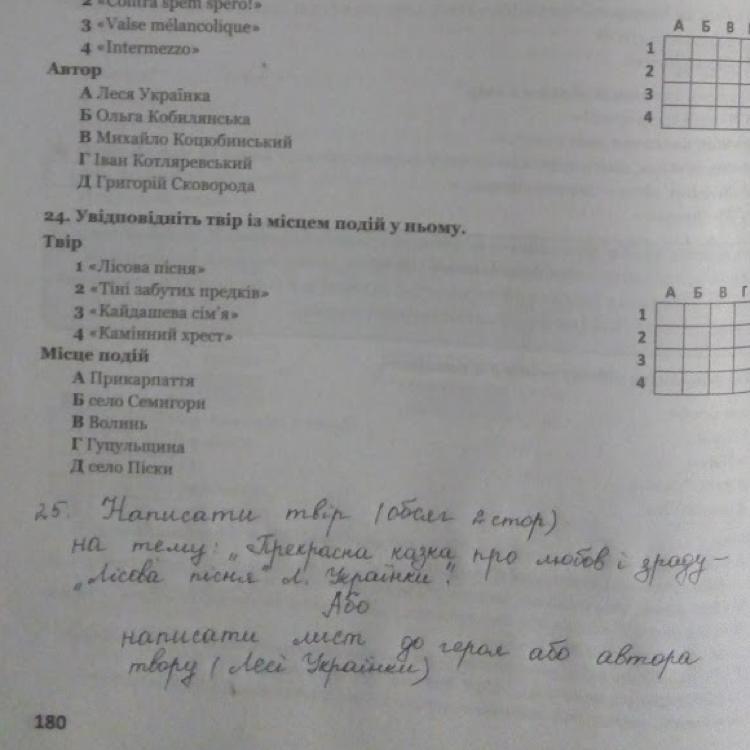 2 «Contra spem spero!»
3 «Valse mélancolique»
4 «Intermezzo»
А Б В
1
2
3
4
Автор
А Леся Українка
Б Ольга Кобилянська
В Михайло Коцюбинський
Г Іван Котляревський
Д Григорій Сковорода
24. Увідповідніть твір із місцем подій у ньому.
Твір
1 «Лісова пісня»
2 «Тіні забутих предків»
3 «Кайдашева сім'я»
4 «Камінний хрест»
А Б В Г
1
2
3
4
Місце подій
А Прикарпаття
Б село Семигори
В Волинь
Г Гуцульщина
Д село Піски
25. Написати твір (обсяг 2 стор)
на тему: „Прекрасна казка про любов і зраду –
„Лісова пісня" Л. Українки".
Або
написати лист до героя або автора
твору (Лесі Українки)
180